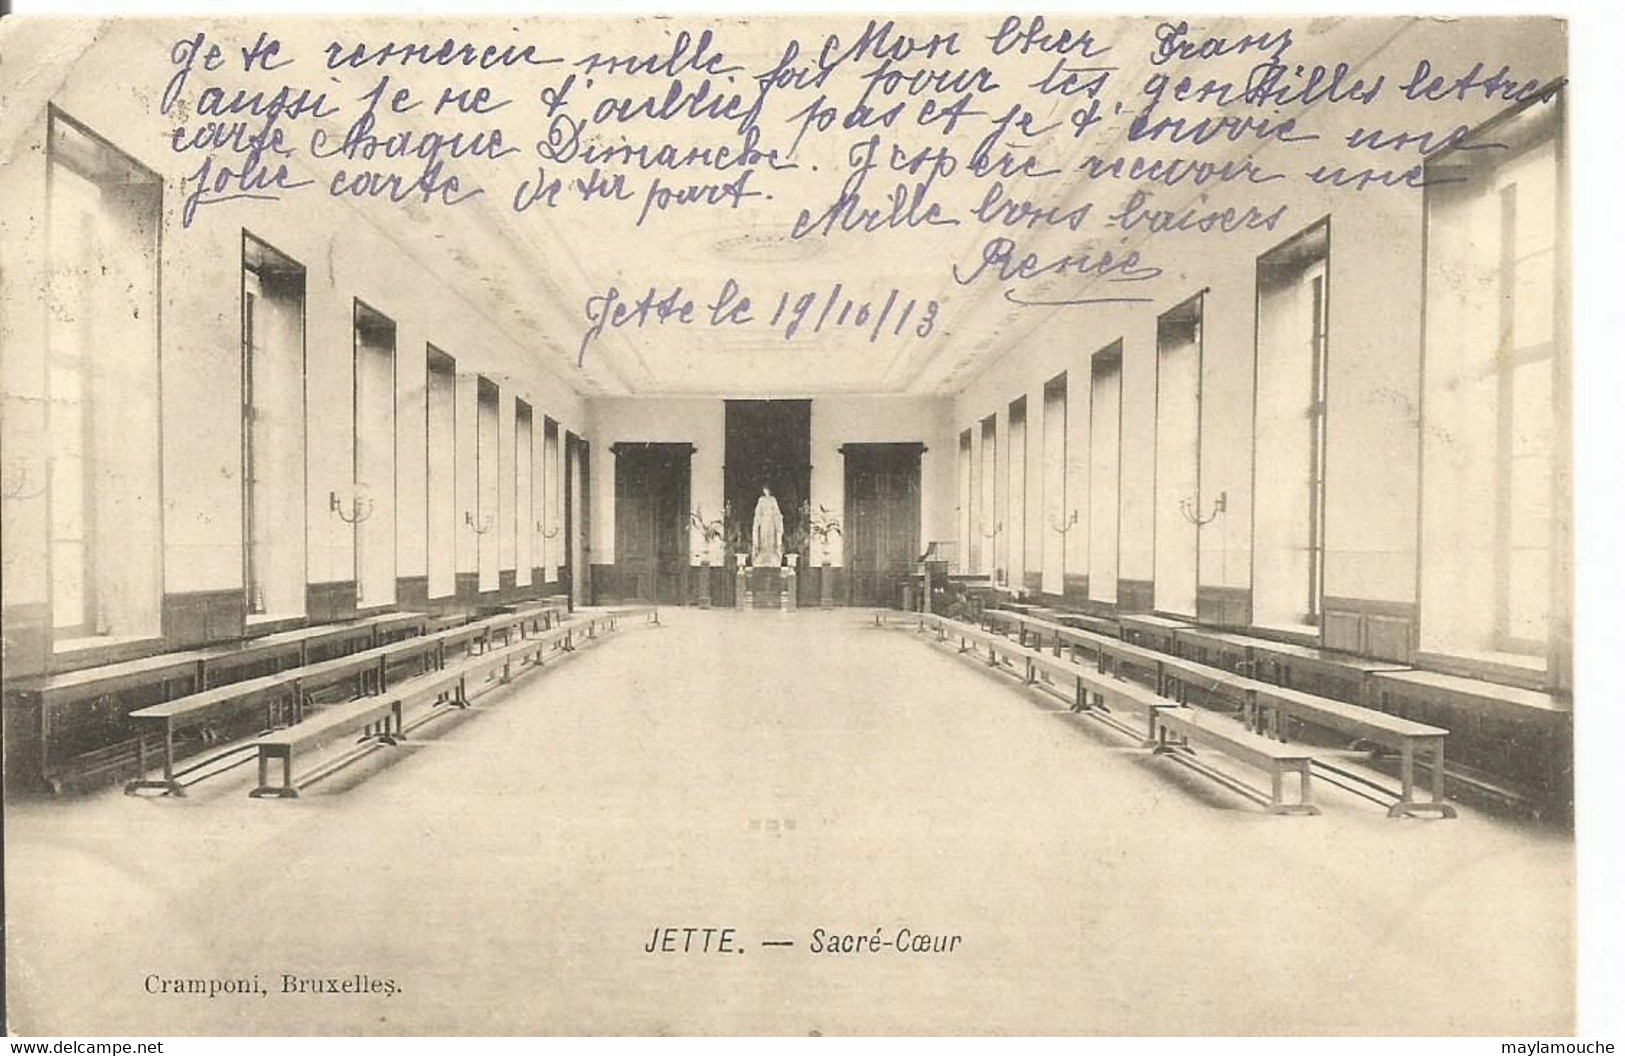 Mon cher Franz
Je te remercie mille fois pour tes gentilles lettres
aussi je ne t'oublie pas et je t'envoie une
carte chaque Dimanche. J'espère recevoir une
jolie carte de ta part.
Mille bons baisers
Renée
Jette le 19/10/13
JETTE. — Sacré-Cœur
Cramponi, Bruxelles.
www.delcampe.net
maylamouche